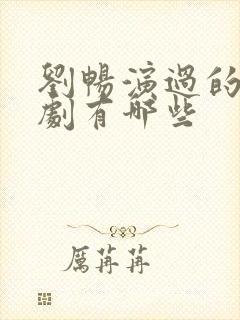 劉暢演過的
劇有哪些
厲苒苒